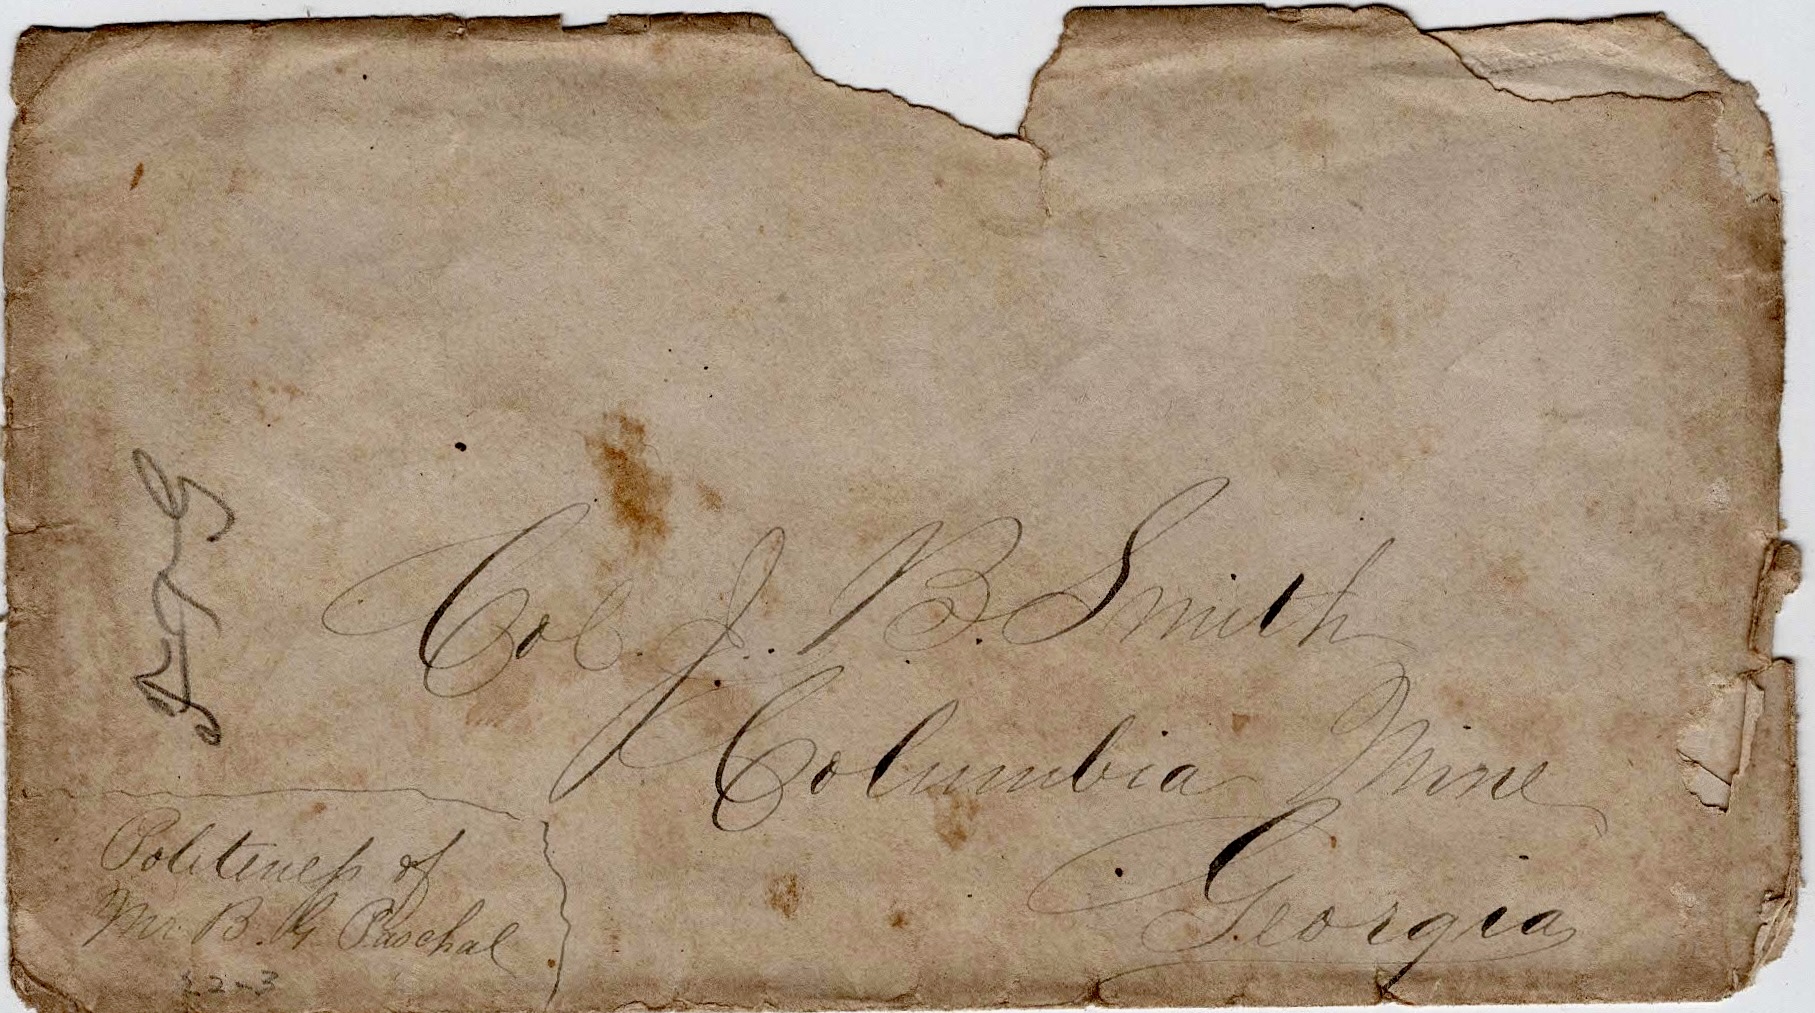 Col. J. B. Smith
Columbia Mine
Georgia
Politeness of
Mr. B. G. Paschal